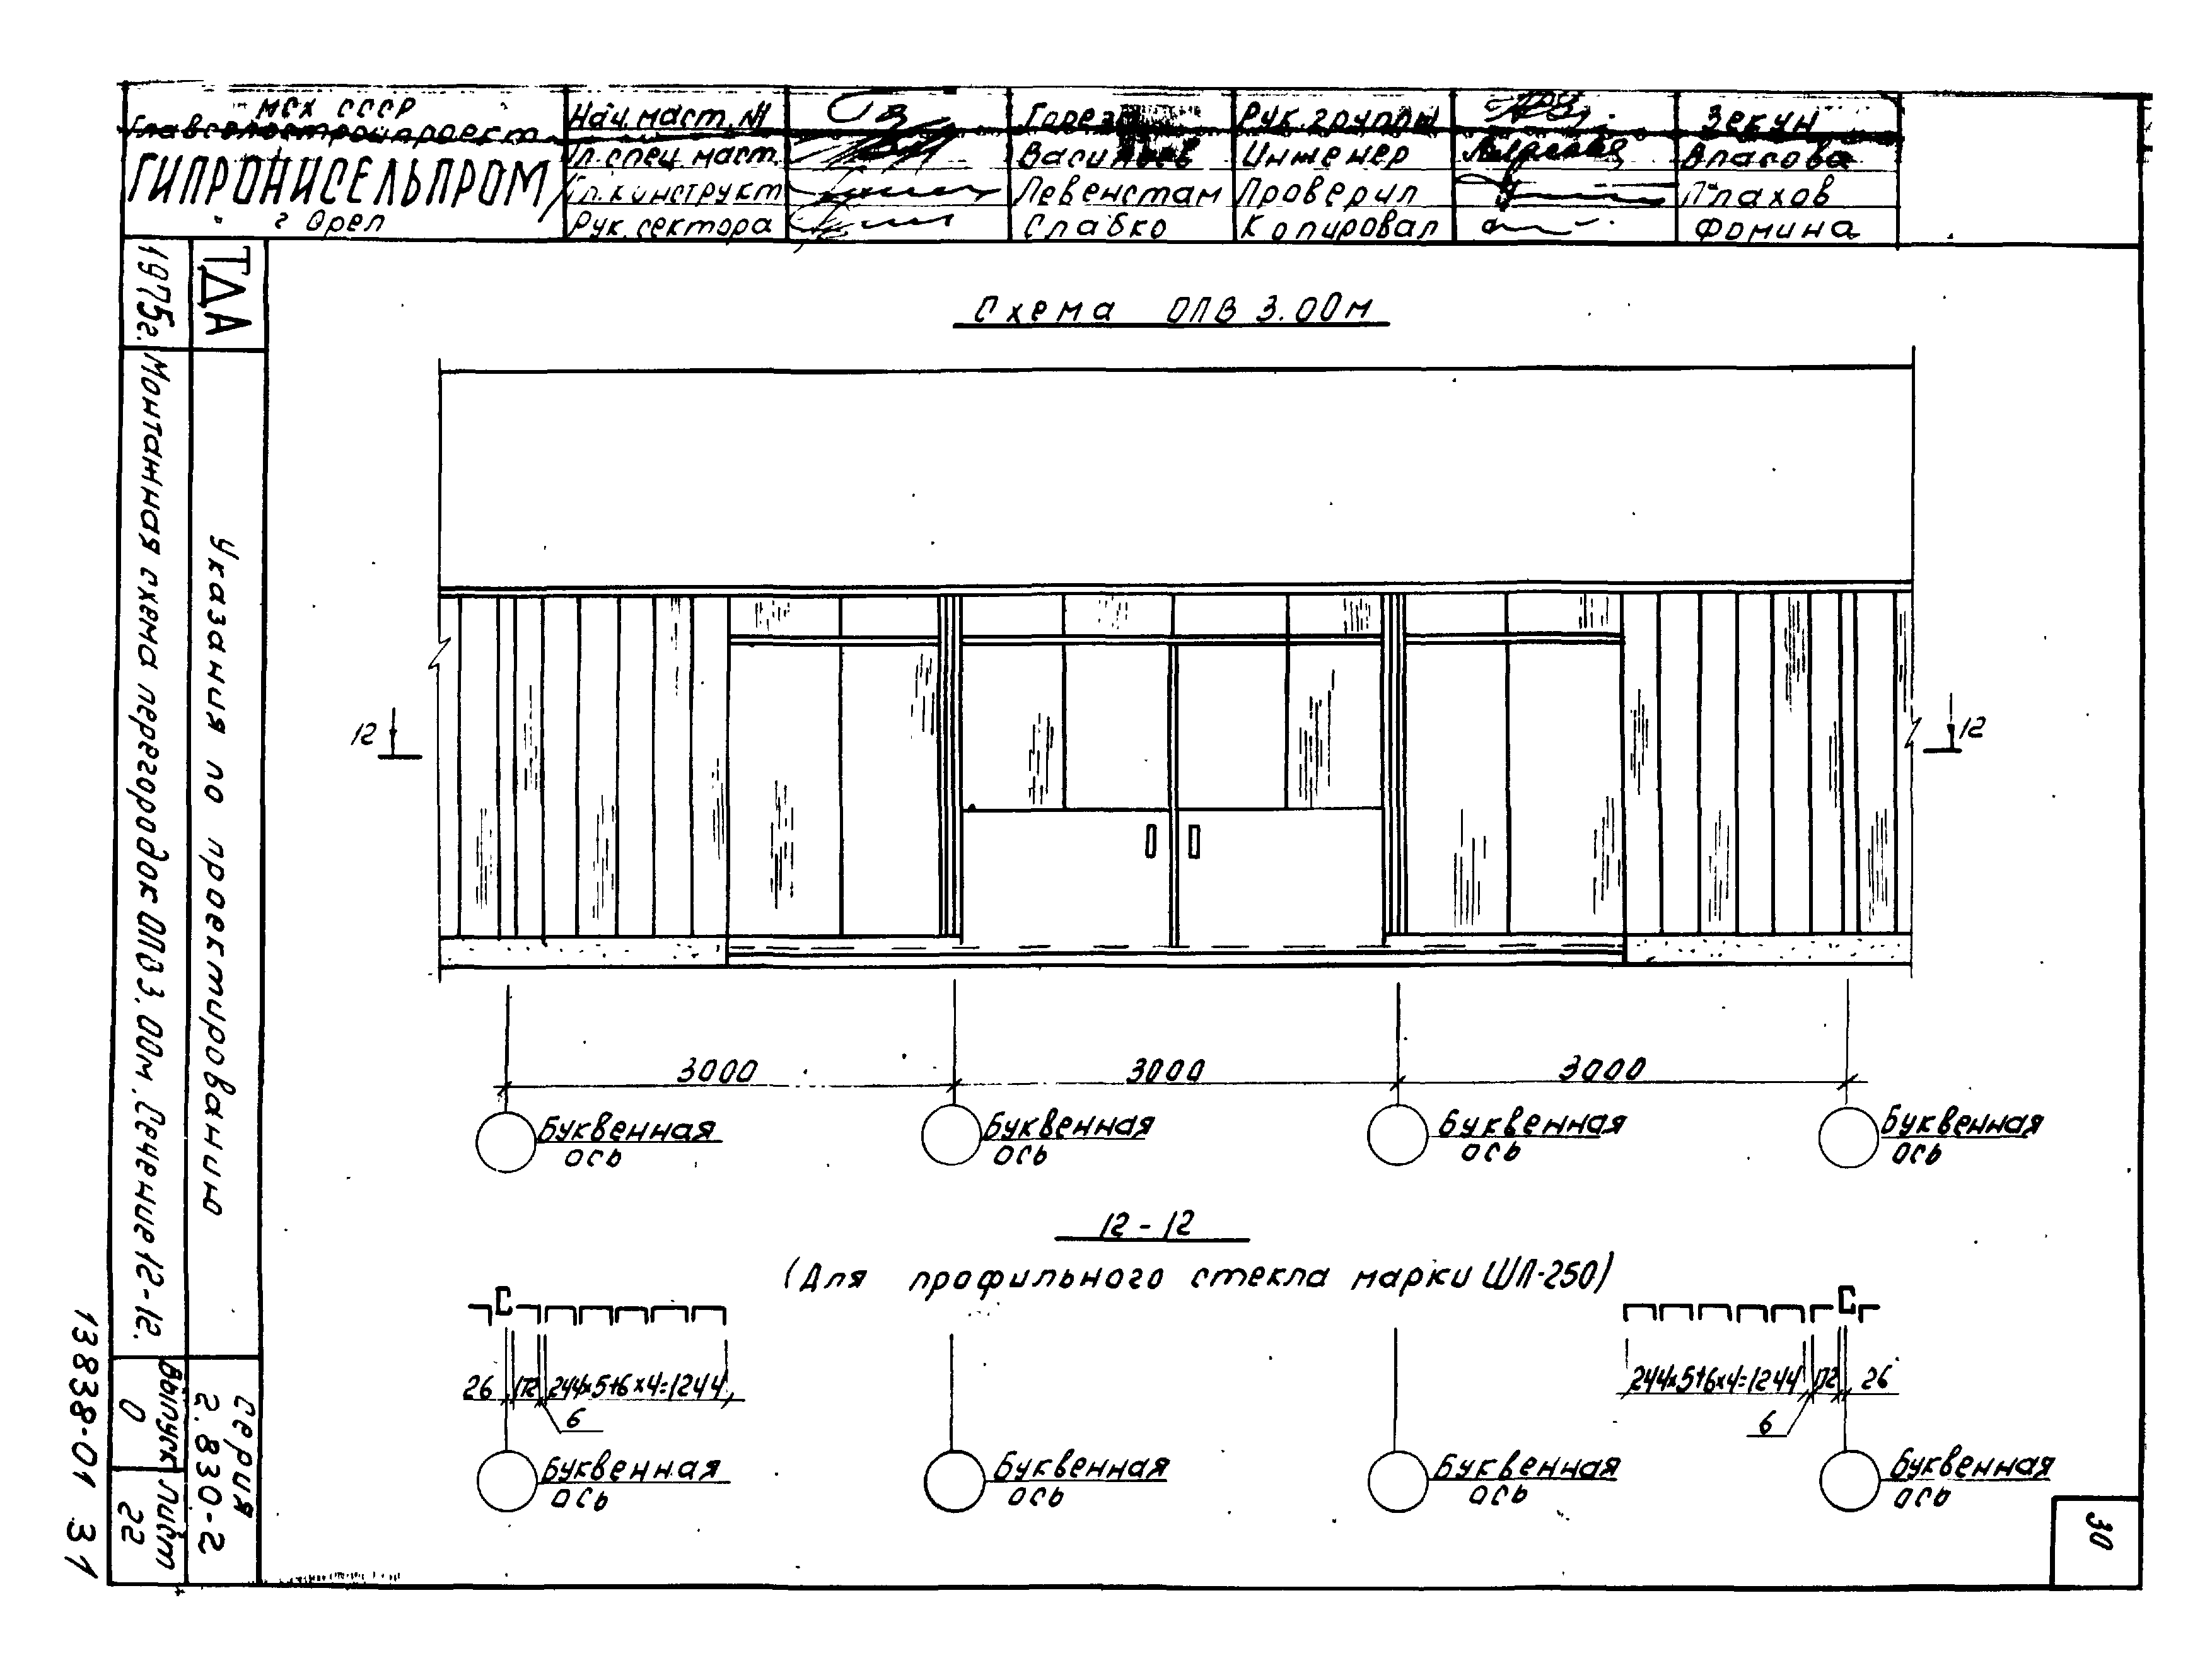 МСХ СССР
Главсельстройпроект
ГИПРОНИСЕЛЬПРОМ
г Орел
Нач. маст. №1
Рук. группы
Зекун
Гл. спец. маст.
Васильев
Инженер
Власова
Гл. конструкт
Левенстам
Проверил
Плахов
Рук. сектора
Слабко
Копировал
Фомина
ТДА
1975г.
Указания по проектированию
Монтажная схема перегородок ОПВ 3.00м. Сечение 12-12.
Серия
2.830-2
Выпуск
0
Лист
22
13838-01 31
Схема ОПВ 3.00м
12
12
3000
3000
3000
Буквенная
ось
Буквенная
ось
Буквенная
ось
Буквенная
ось
12-12
(Для профильного стекла марки ШП-250)
С
С
26
172
244х5+6х4=1244
6
244х5+6х4=1244
172
26
6
Буквенная
ось
Буквенная
ось
Буквенная
ось
Буквенная
ось
30